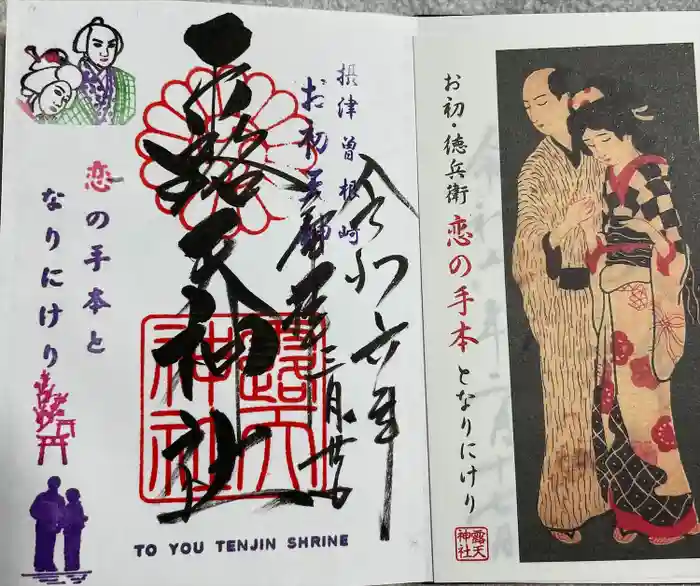 お初・徳兵衛 恋の手本となりにけり
露天
神社
令和六年
三月
摂津 曽根崎
お初天神
露天神社
露天
神社
恋の手本と
なりにけり
TO YOU TENJIN SHRINE